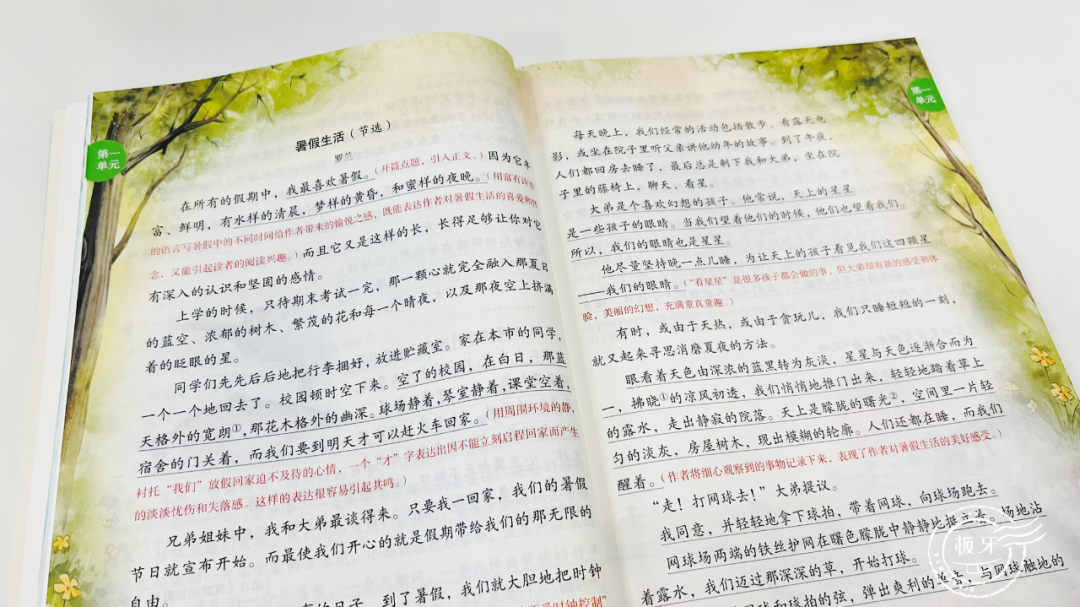 第一
单元
暑假生活（节选）
罗兰
在所有的假期中，我最喜欢暑假。（开篇点题，引入正文。）因为它丰
富、鲜明，有水样的清晨，梦样的黄昏，和蜜样的夜晚。（用富有诗意
的语言写暑假中的不同时间给作者带来的愉悦之感，既能表达作者对暑假生活的喜爱和怀
念，又能引起读者的阅读兴趣。）而且它又是这样的长，长得足够让你对它
有深入的认识和坚固的感情。
上学的时候，只待期末考试一完，那一颗心就完全融入那夏日
的蓝空、浓郁的树木、繁茂的花和每一个晴夜，以及那夜空上挤满
着的眨眼的星。
同学们先先后后地把行李捆好，放进贮藏室。家在本市的同学，
一个一个地回去了。校园顿时空下来。空了的校园，在白日，那蓝
天格外的宽朗①，那花木格外的幽深。球场静着，琴室静着，课堂空着，
宿舍的门关着，而我们要到明天才可以赶火车回家。（用周围环境的静，
衬托“我们”放假回家迫不及待的心情，一个“才”字表达出因不能立刻启程回家而产生
的淡淡忧伤和失落感。这样的表达很容易引起共鸣。）
兄弟姐妹中，我和大弟最谈得来。只要我一回家，我们的暑假
节日就宣布开始。而最使我们开心的就是假期带给我们的那无限的
自由。
的日子，到了暑假，我们就大胆地把时钟
第一
单元
每天晚上，我们经常的活动包括散步、看露天电
影，或坐在院子里听父亲讲他幼年的故事。到了午夜，
人们都回房去睡了，最后总是剩下我和大弟，坐在院
子里的藤椅上，聊天、看星。
大弟是个喜欢幻想的孩子。他常说，天上的星星
是一些孩子的眼睛。当我们望着他们的时候，他们也望着我们。
所以，我们的眼睛也是星星。
他尽量坚持晚一点儿睡，为让天上的孩子看见我们这四颗星
——我们的眼睛。（“看星星”是很多孩子都会做的事，但大弟却有新的感受和体
验，美丽的幻想，充满童真童趣。）
有时，或由于天热，或由于贪玩儿，我们只睡短短的一刻，
就又起来寻思消磨夏夜的方法。
眼看着天色由深浓的蓝黑转为灰淡，星星与天色逐渐合而为
一，拂晓①的凉风初透，我们悄悄地推门出来，轻轻地踏着草上
的露水，走出静寂的院落。天上是朦胧的曙光②，空间里一片轻
匀的淡灰，房屋树木，现出模糊的轮廓。人们还都在睡，而我们
醒着。（作者将细心观察到的事物记录下来，表现了作者对暑假生活的美好感受。）
“走！打网球去！”大弟提议。
我同意，并轻轻地拿下球拍，带着网球，向球场跑去。
网球场两端的铁丝护网在曙色朦胧中静静地挺立着，场地沾
着露水，我们迈过那深深的草，开始打球。
网球和球拍的弦，弹出爽利的单音，与网球触地的
板牙